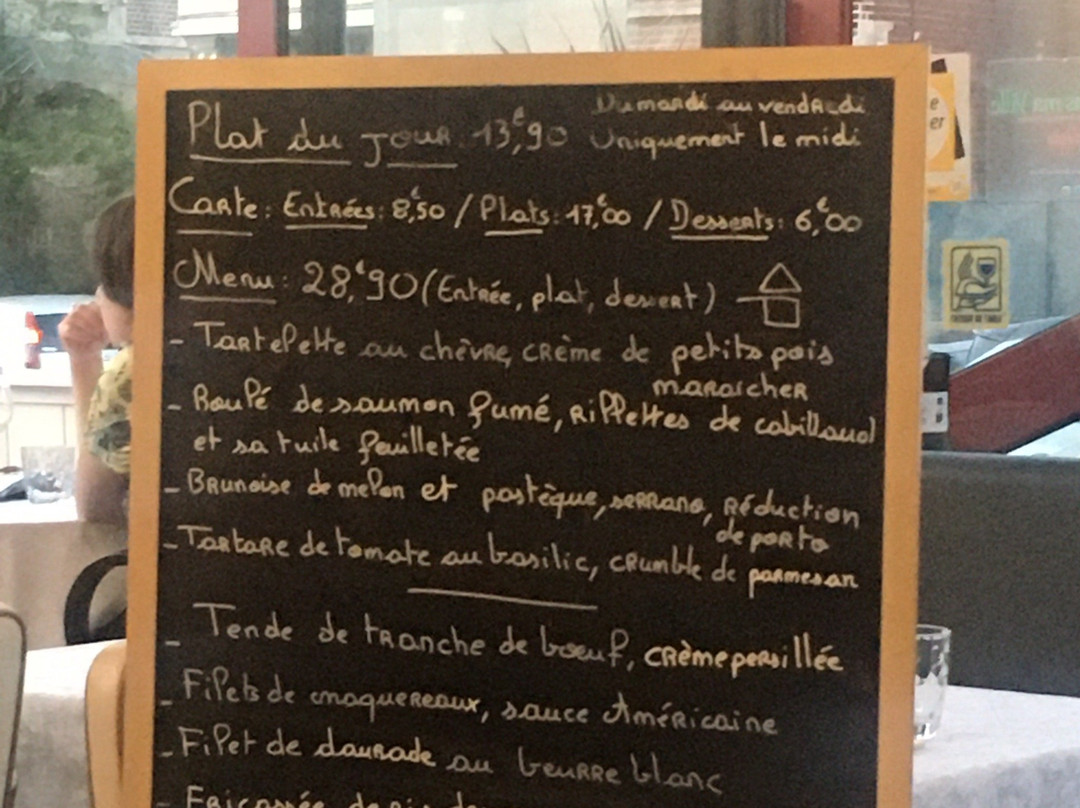 Plat du Jour: 13,€90 Du mardi au vendredi
Uniquement le midi
Carte: Entrées: 8,€50 / Plats: 17,€00 / Desserts: 6,€00
Menu: 28,€90 (Entrée, plat, dessert)
- Tartelette au chèvre, crème de petits pois
maraîcher
- Roulé de saumon fumé, rillettes de cabillaud
et sa tuile feuilletée
- Brunoise de melon et pastèque, serrano, réduction
de porto
- Tartare de tomate au basilic, crumble de parmesan
- Tende de tranche de bœuf, crème persillée
- Filets de maquereaux, sauce Américaine
- Filet de daurade au beurre blanc
- Fricassée